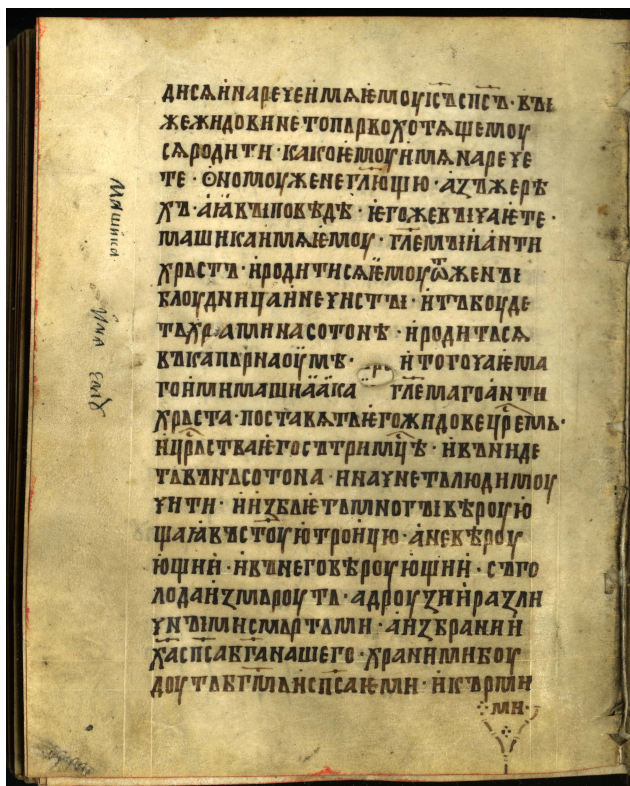 дисѧ и нарече имѧ ѥмоу іс҃ъ сп҃съ · въі
же жидовине то пьрво хотѧщемоу
сѧ родити · како ѥмоу имѧ нарече
те · ѻномоу же не гл҃ющю · азъ же рѣ
хъ · а ꙗ въі повѣдѣ · ѥгоже въі чаѥте ·
машика имѧ ѥмоу · гл҃емъіи анти
хрьстъ · и родити сѧ ѥмоу ѿ женъі
блоудница и нечистъі · и тъ боуде
тъ храмина сотонѣ · и родить сѧ
въ капърнаоумѣ · и того чаѥма
го ими машиаака гл҃емаго анти
хрьста · поставѧть ѥго жидове цр҃емь ·
и цр҃ьства ѥго съ три мц҃ѣ · и вънide
ть вънь сотона · и начнеть люди моу
чити · и избьѥть мъногъі вѣроую
щаꙗ въ ст҃оую троицю · а невѣроу
ющии · и въ него вѣроующии · съ го
лода измьроуть · а дроузии разли
чнъіми смьртьми · а избрании
х҃а сп҃са б҃га нашего · храними боу
доуть г҃мь и сп҃саѥми · и кърми
ми ·
машика
имѧ ѥмоу